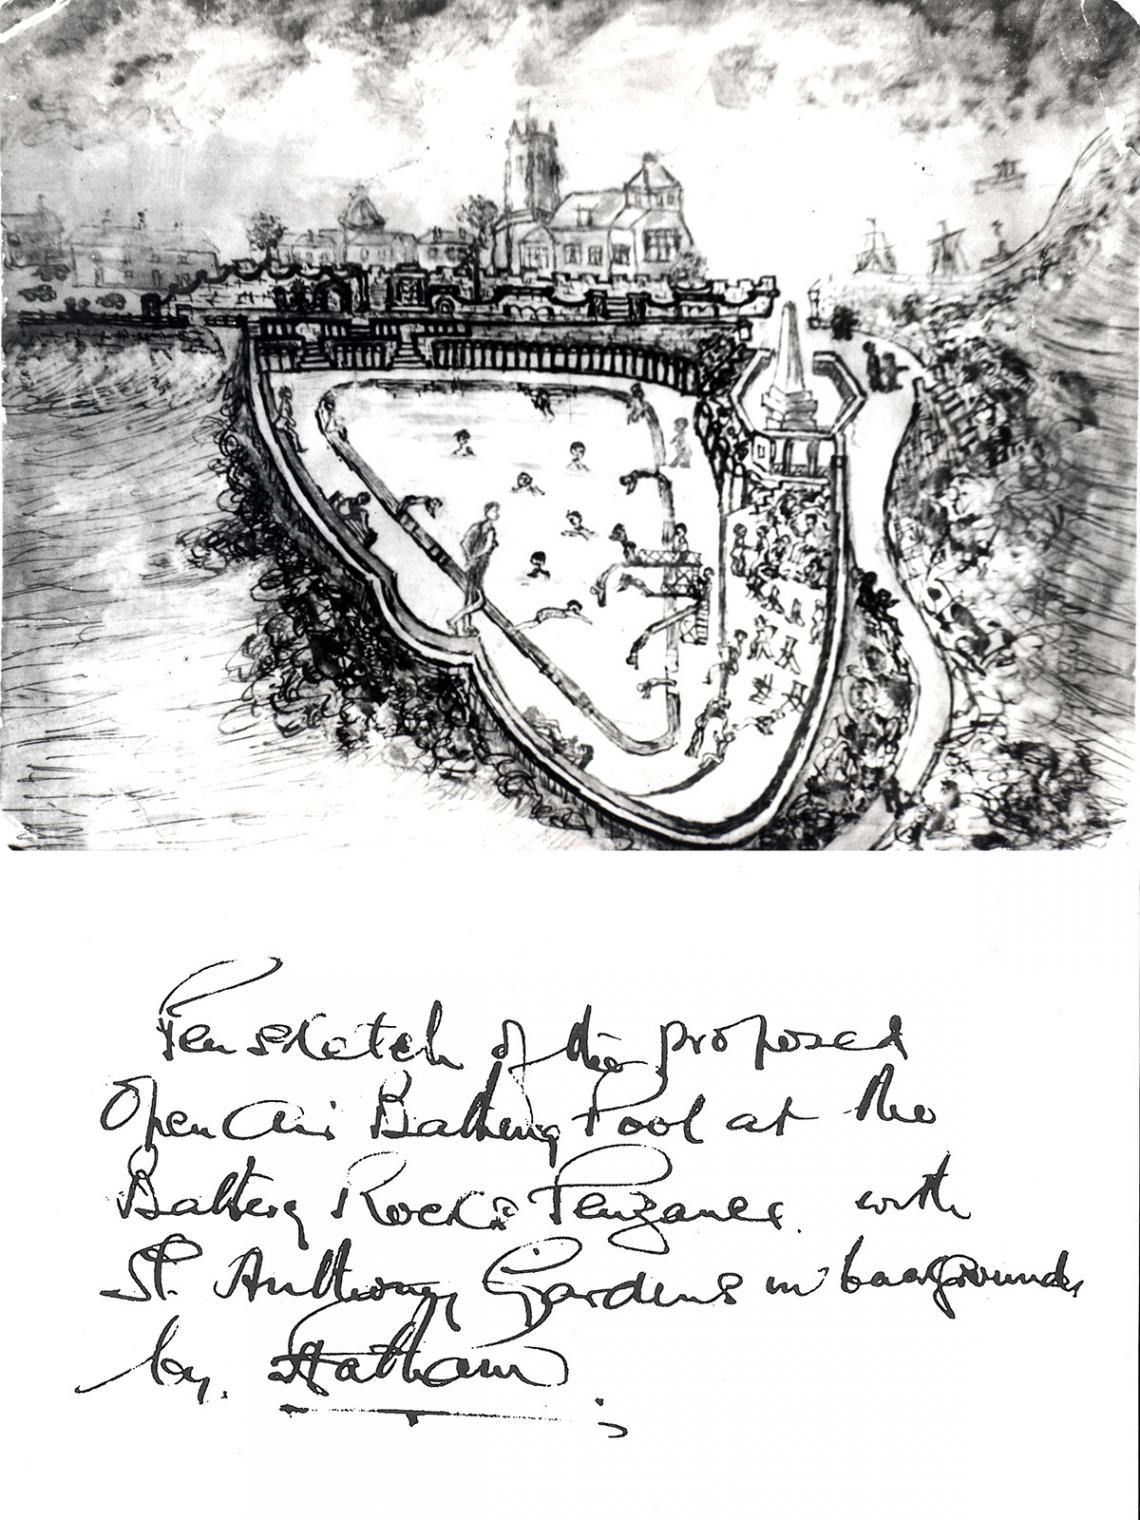 Pen sketch of the proposed
Open Air Bathing Pool at the
Battery Rocks Penzance. with
St. Anthony Gardens in backgrounds
by. Latham